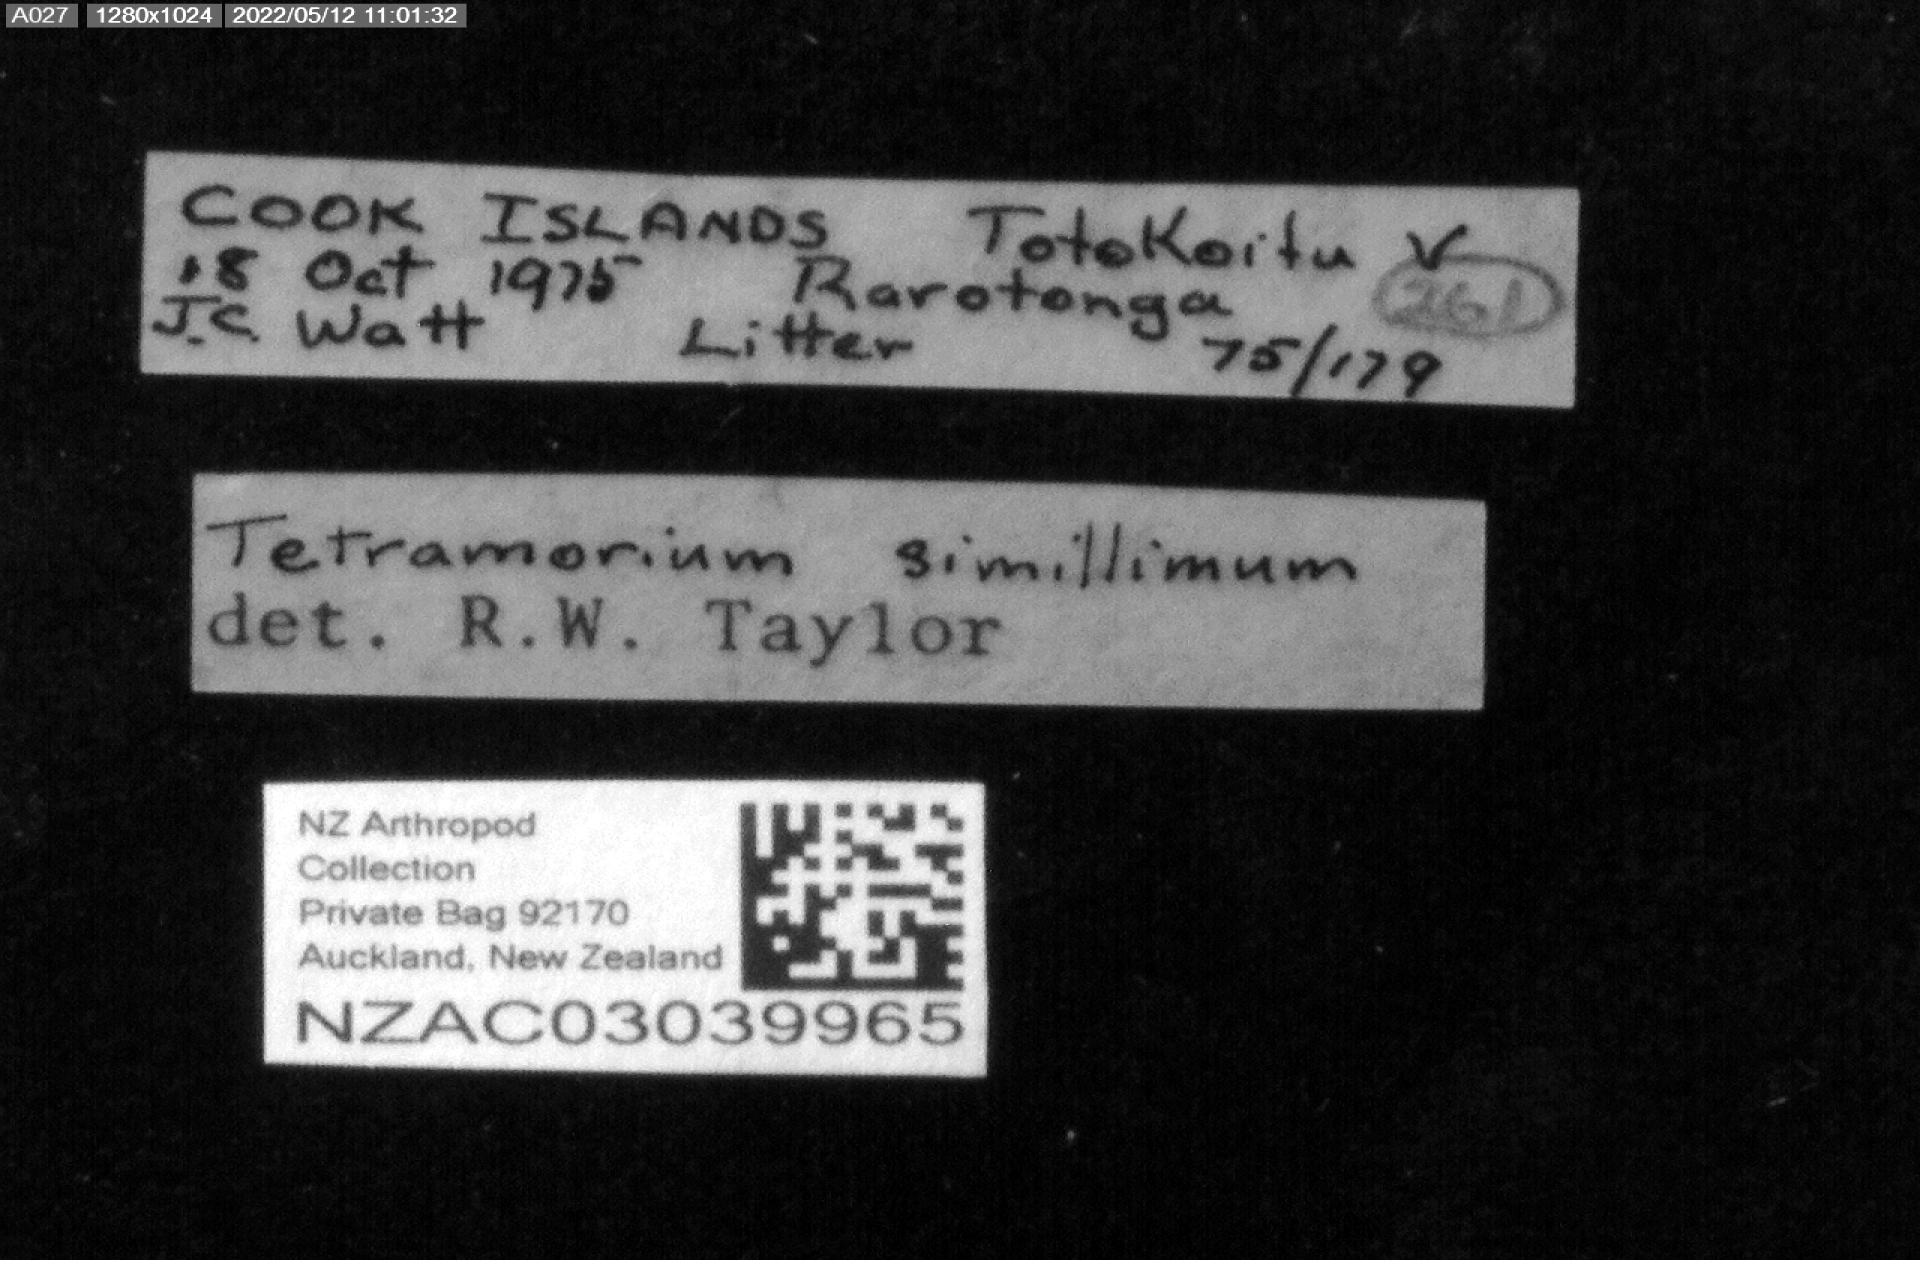 A027 1280x1024 2022/05/12 11:01:32
COOK ISLANDS Totokoitu V
18 Oct 1975 Rarotonga 261
J.C. Watt Litter 75/179
Tetramorium simillimum
det. R.W. Taylor
NZ Arthropod
Collection
Private Bag 92170
Auckland, New Zealand
NZAC03039965